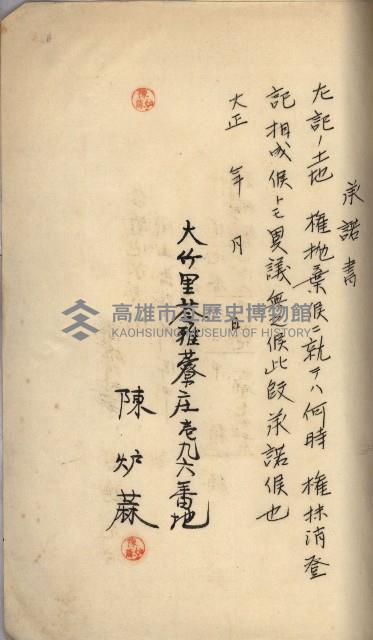 承諾書
左記ノ土地　権抛棄候ニ就テハ何時　権抹消登
記相成候トモ異議無之候此段承諾候也
大正　年　月　日
大竹里苓雅藔庄壱九六番地
陳炉蔴
高雄市立歷史博物館
KAOHSIUNG MUSEUM OF HISTORY